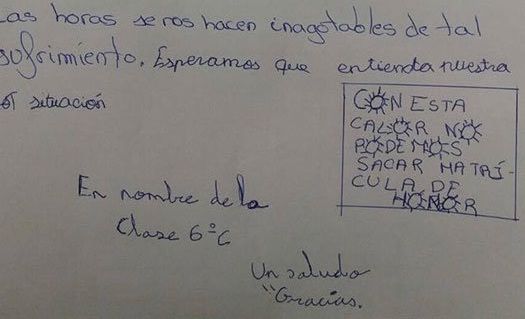 Las horas se nos hacen inagotables de tal
sufrimiento. Esperamos que entienda nuestra
situación
CON ESTA
CALOR NO
PODEMOS
SACAR MATRÍ-
CULA DE
HONOR
En nombre de la
Clase 6°C
Un saludo
"Gracias.